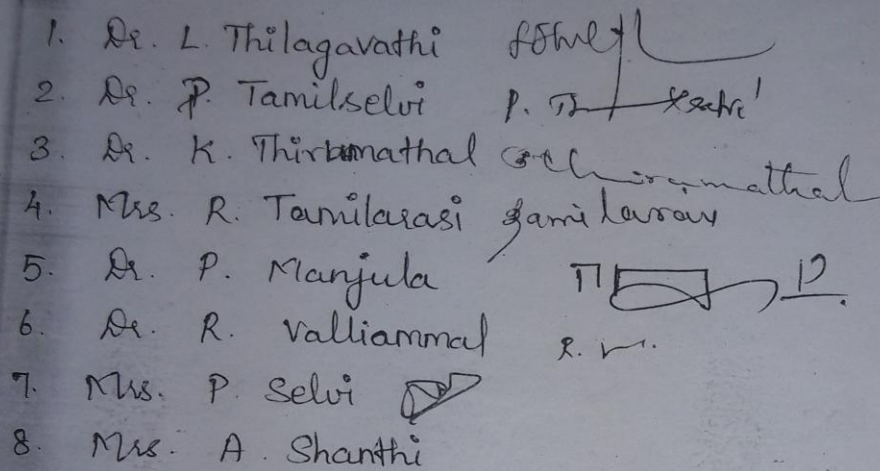 1. Dr. L. Thilagavathi
2. Dr. P. Tamilselvi P.
3. Dr. K. Thirumathal Thirumathal
4. Mrs. R. Tamilarasi
5. Dr. P. Manjula
6. Dr. R. Valliammal R. V.
7. Mrs. P. Selvi
8. Mrs. A. Shanthi